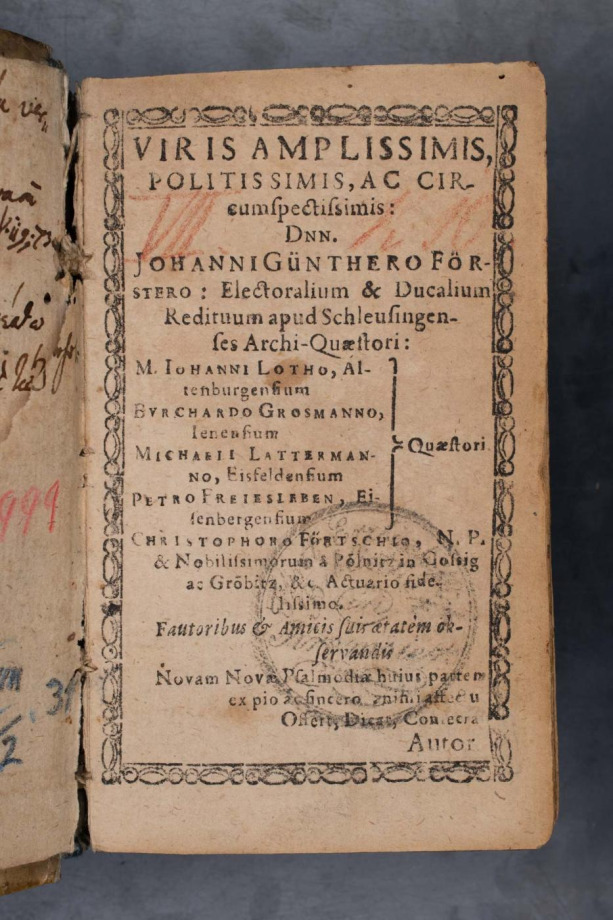 VIRIS AMPLISSIMIS,
POLITISSIMIS, AC CIR-
cumſpectiſsimis:
DNN.
JOHANNI GÜNTHERO FÖR-
STERO: Electoralium & Ducalium
Redituum apud Schleuſingen-
ſes Archi-Quæſtori:
M. IOHANNI LOTHO, Al-
tenburgenſium
BVRCHARDO GROSMANNO,
Ienenſium
MICHAELI LATTERMAN-
NO, Eisfeldenſium
PETRO FREIESLEBEN, Ei-
ſenbergenſium
Quæſtori
CHRISTOPHORO FÖRTSCHIO, N. P.
& Nobiliſsimorum à Pölnitz in Goſsig
ac Gröbitz, &c. Actuario fide-
liſsimo.
Fautoribus & Amicis ſuis ætatem ob-
ſervandis
Novam Novæ Pſalmodiæ huius partem
ex pio ac ſincero animi affectu
Offert, Dicat, Conſecrat
Autor
1999